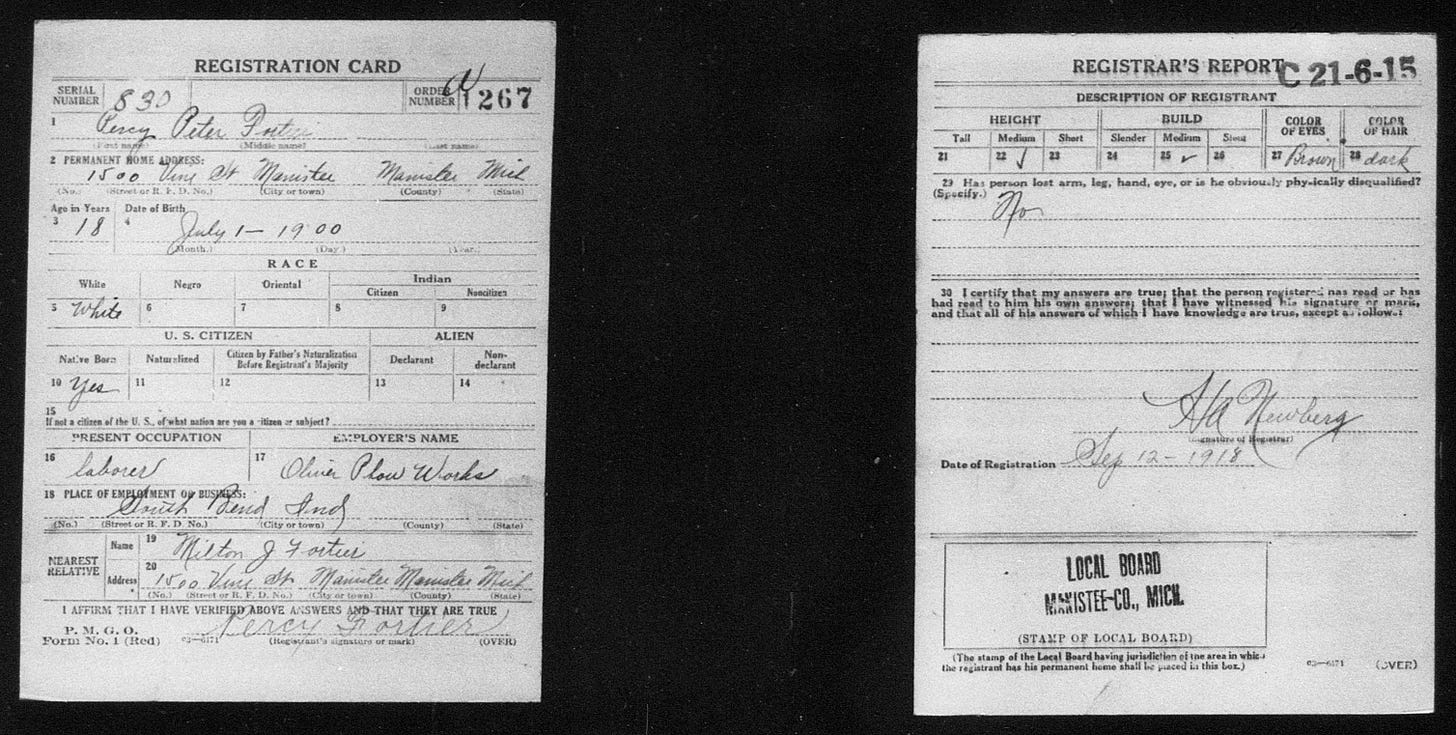 REGISTRATION CARD
SERIAL NUMBER 830 ORDER NUMBER A1267
1 Percy Peter Fortier
(First name) (Middle name) (Last name)
2 PERMANENT HOME ADDRESS:
1500 Vine St Manistee Manistee Mich
(No.) (Street or R. F. D. No.) (City or town) (County) (State)
Age in Years Date of Birth
3 18 4 July 1 - 1900
(Month.) (Day.) (Year.)
RACE
White Negro Oriental Indian
Citizen Noncitizen
5 White 6 7 8 9
U. S. CITIZEN ALIEN
Native Born Naturalized Citizen by Father's Naturalization Before Registrant's Majority Declarant Non-declarant
10 Yes 11 12 13 14
15
If not a citizen of the U. S., of what nation are you a citizen or subject?
PRESENT OCCUPATION EMPLOYER'S NAME
16 laborer 17 Oliver Plow Works
18 PLACE OF EMPLOYMENT OR BUSINESS:
South Bend Ind
(No.) (Street or R. F. D. No.) (City or town) (County) (State)
NEAREST RELATIVE Name 19 Milton J Fortier
Address 20 1500 Vine St Manistee Manistee Mich
(No.) (Street or R. F. D. No.) (City or town) (County) (State)
I AFFIRM THAT I HAVE VERIFIED ABOVE ANSWERS AND THAT THEY ARE TRUE
P. M. G. O.
Form No. 1 (Red) 03—6171 Percy Fortier
(Registrant's signature or mark) (OVER)
REGISTRAR'S REPORT C 21-6-15
DESCRIPTION OF REGISTRANT
HEIGHT BUILD COLOR OF EYES COLOR OF HAIR
Tall Medium Short Slender Medium Stout
21 22 ✓ 23 24 25 ✓ 26 27 Brown 28 dark
29 Has person lost arm, leg, hand, eye, or is he obviously physically disqualified?
(Specify.) No
30 I certify that my answers are true; that the person registered has read or has
had read to him his own answers; that I have witnessed his signature or mark,
and that all of his answers of which I have knowledge are true, except as follows:
Newberg
(Signature of Registrar)
Date of Registration Sep 12 - 1918
LOCAL BOARD
MANISTEE-CO., MICH.
(STAMP OF LOCAL BOARD)
(The stamp of the Local Board having jurisdiction of the area in which
the registrant has his permanent home shall be placed in this box.)
03—6171 (OVER)